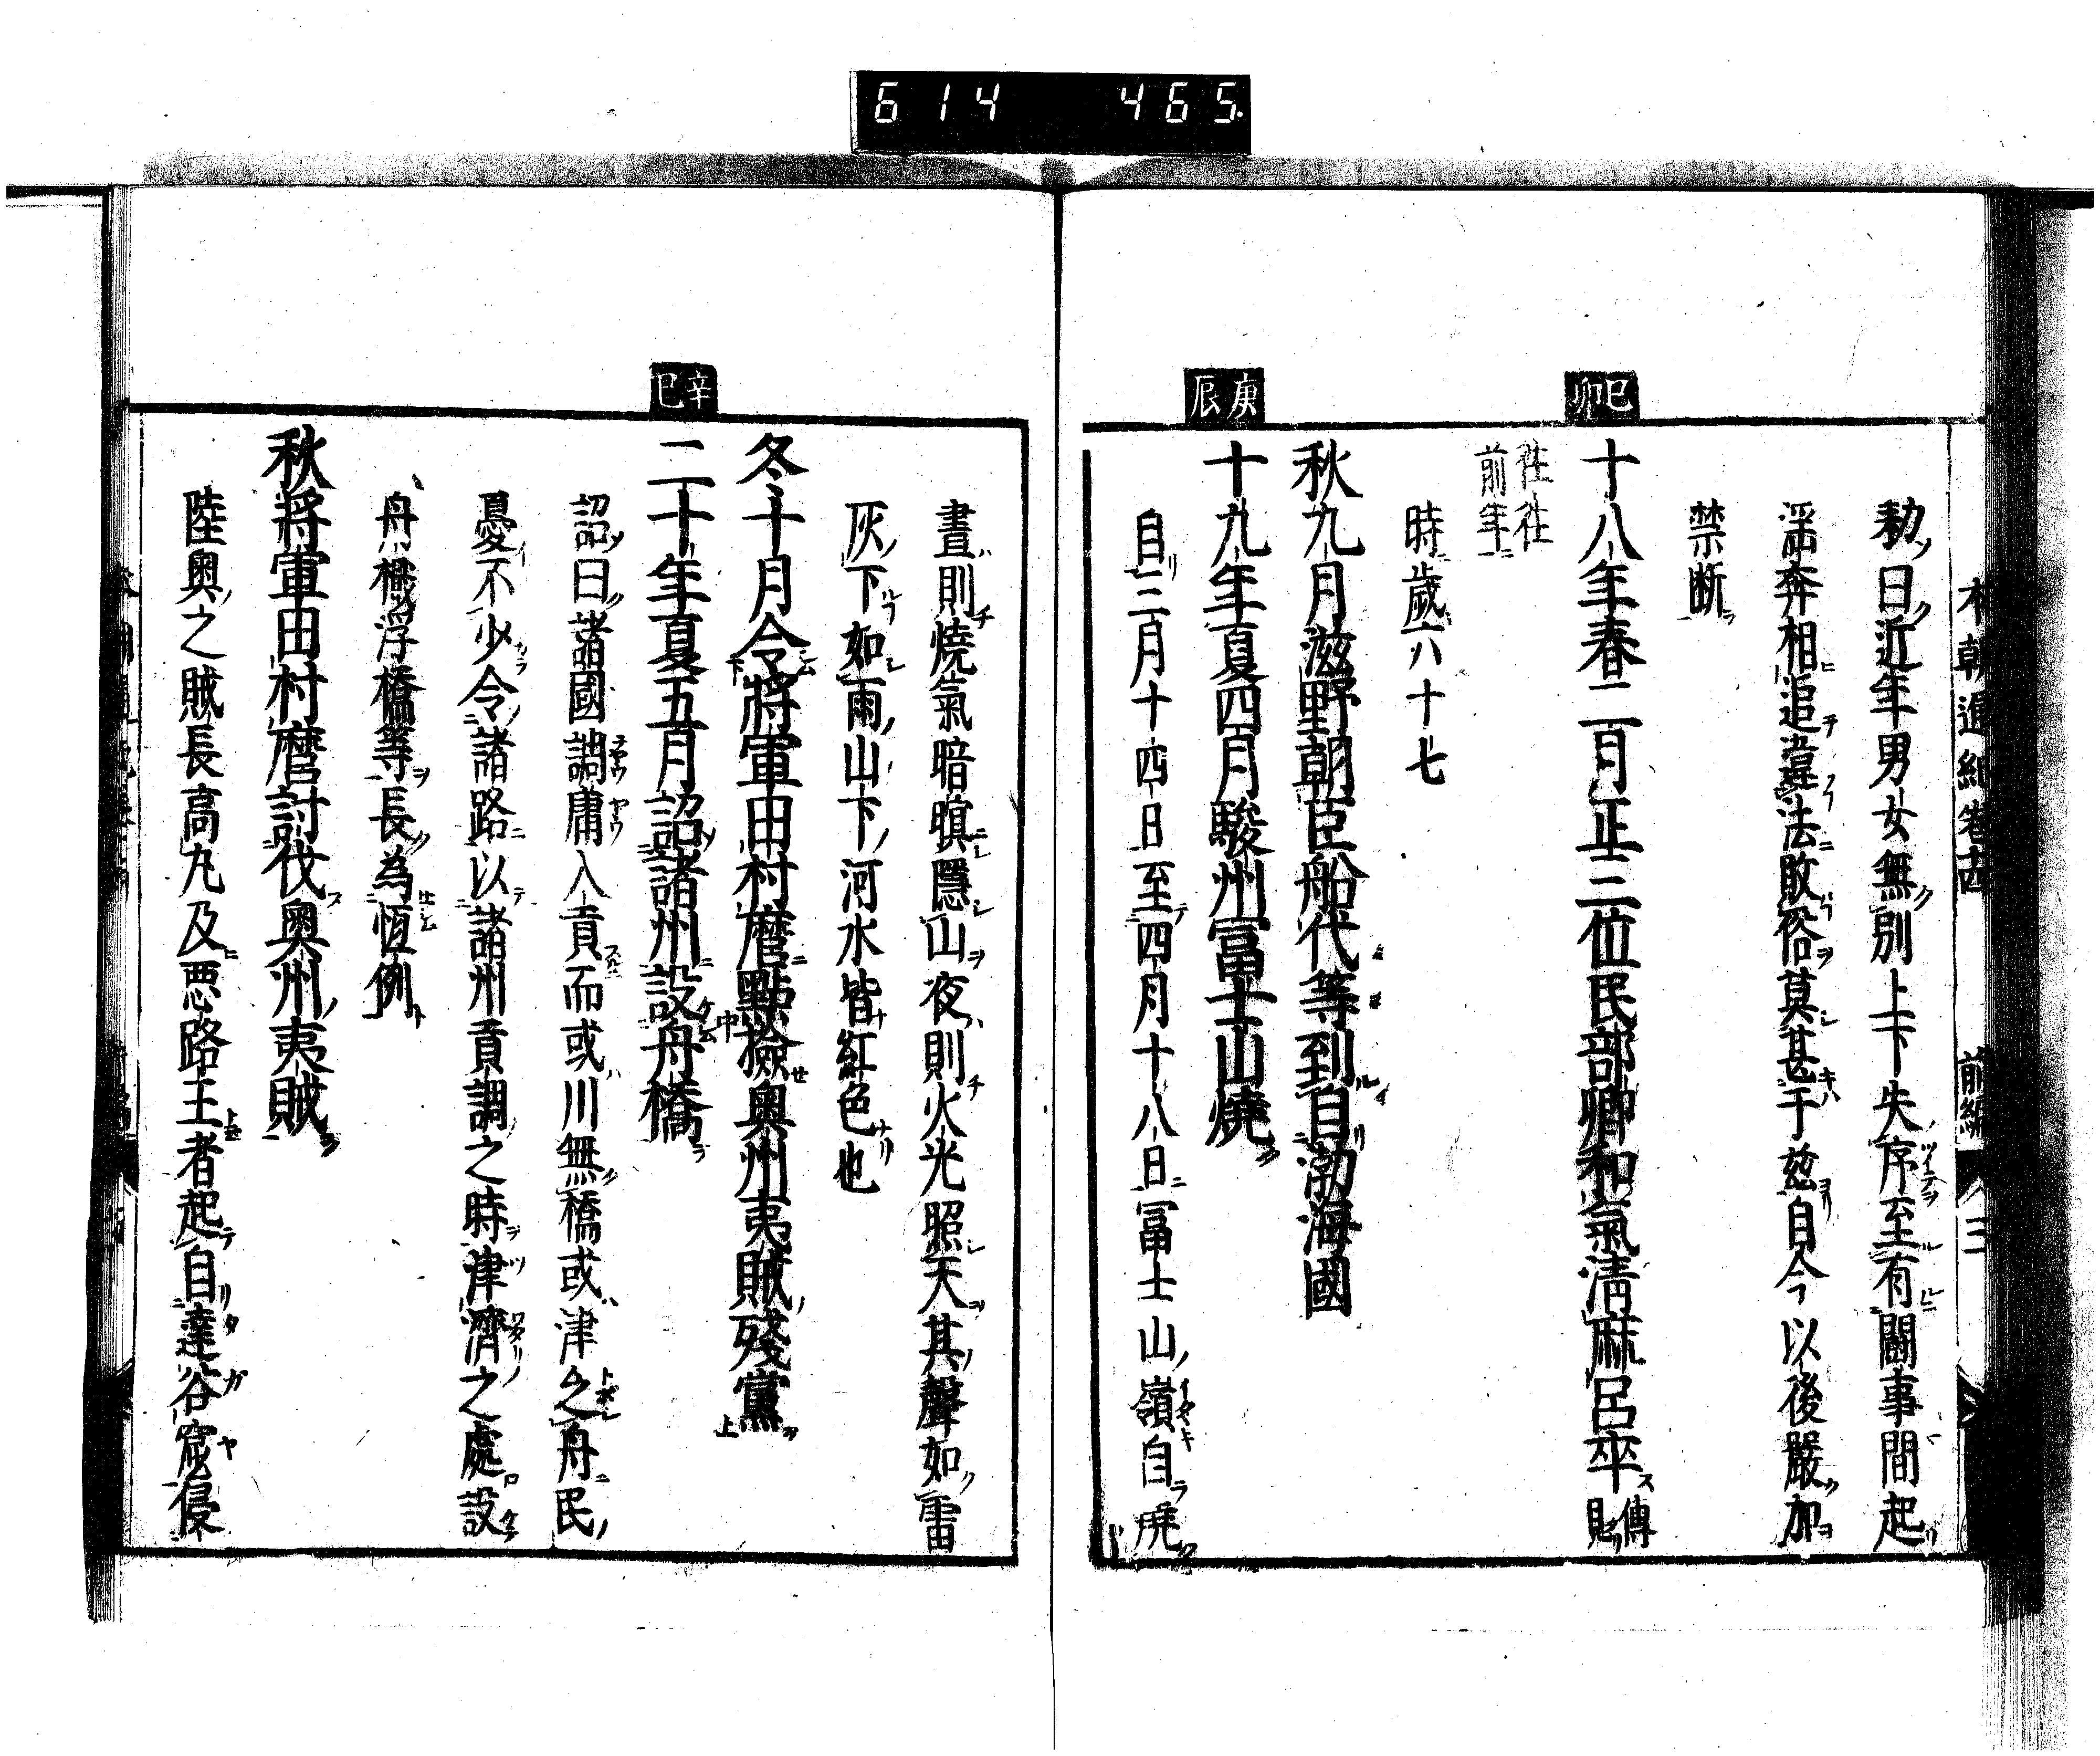 614 465
本朝通紀卷十四 前編 三
勅曰近年男女無別上下失序至有鬪事間起
淫奔相追違法敗俗莫甚于茲自今以後嚴加
禁断
己卯
十八年春二月正三位民部卿和氣清麻呂卒 傳
往往
前年
時歲六十七
秋九月滋野朝臣船代等到自渤海國
庚辰
十九年夏四月駿州冨士山燒
自三月十四日至四月十八日冨士山嶺自燒
晝則燒氣暗暝隱山夜則火光照天其聲如雷
灰下如雨山下河水皆紅色也
冬十月令將軍田村麿點撿奧州夷賊殘黨
辛巳
二十年夏五月詔諸州設舟橋
詔曰諸國調庸入貢而或川無橋或津乏舟民
憂不少令諸路以諸州貢調之時津濟之處設
舟檝浮橋等長為恆例
秋將軍田村麿討伐奧州夷賊
陸奥之賊長高丸及悪路王者起自達谷窟侵